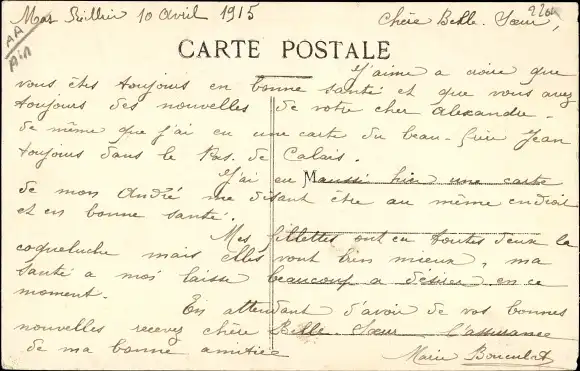 Mas Rillier 10 Avril 1915 Chère Belle-Sœur,
AA
Ain
CARTE POSTALE
J'aime a croire que
vous êtes toujours en bonne santé et que vous avez
toujours des nouvelles de votre cher Alexandre.
de même que j'ai eu une carte du beau-frère Jean
toujours dans le Pas. de Calais.
J'ai eu M aussi hier une carte
de mon André me disant être au même endroit
et en bonne santé.
Mes fillettes ont eu toutes deux la
coqueluche mais elles vont bien mieux, ma
santé a moi laisse beaucoup a désirer en ce
moment.
En attendant d'avoir de vos bonnes
nouvelles recevez chère Belle-Sœur l'assurance
de ma bonne amitiée
Marie